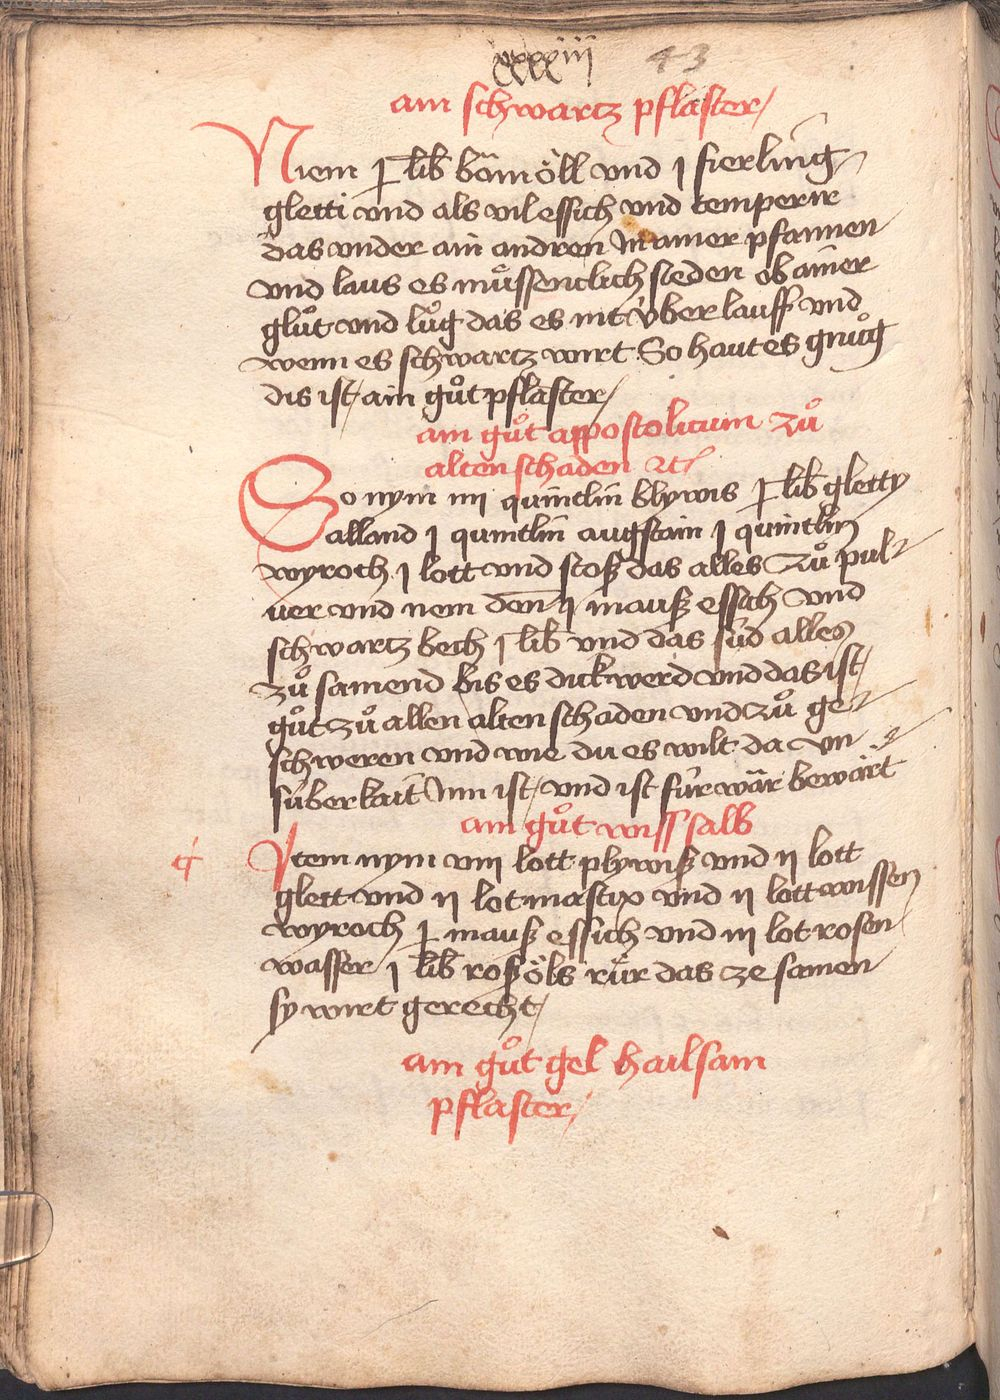 xxxxiii 43
ain schwartz pflaster /
Niem j lib bämöll vnd j fierling
gletti vnd als vil essich vnd temperir
das vnder ain andren In ainer pfannen
vnd laus es mässenclich sieden ob ainer
glůt vnd lůg das es nit v̇ber lauff vnd
wenn es schwartz wirt So haut es gnůg
dis ist / ain gůt pflaster /
ain gůt appostolicum zů
alten schaden ⁊c
So nym iiii quintlin blywis j lib gletty
alland j quintlin augstain j quintlin
wyroch j lott vnd stoß das alles zů pul
uer vnd nem den̄ j mauß essich vnd
schwartz bech j lib vnd das sùd alles
zů samend bis es dick werd vnd das ist /
gůt zů allen alten schaden vnd zů ge
schweren vnd wie du es wilt da vn
sùberkait Inn ist / vnd ist fùrwär bewärt
ain gůt wiss salb
Item nym viii lott plywiß vnd ii lott
glett vnd ii lot mastix vnd ii lott wissen
wyroch j mauß essich vnd iii lot rosen
wasser j lib roßöls rùr das ze samen
sy wirt gerecht /
ain gůt gel hailsam
pflaster /